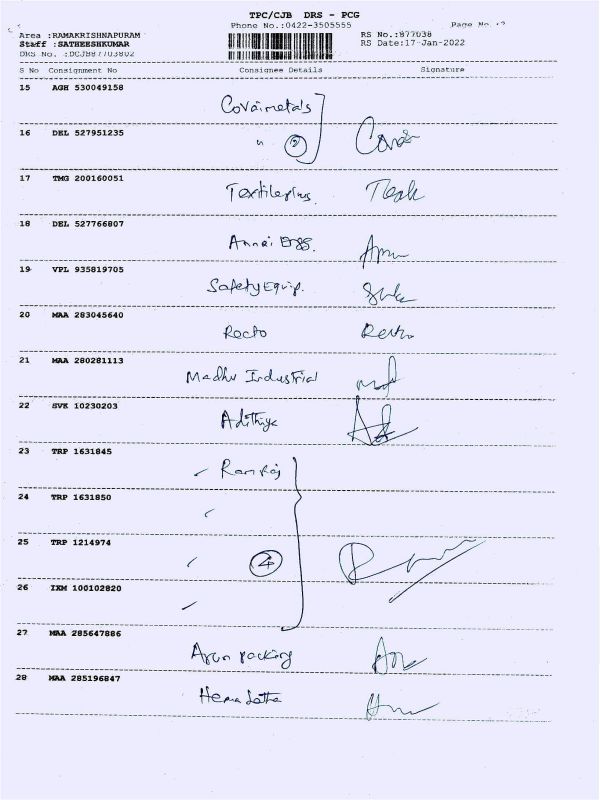 TPC/CJB DRS - PCG
Phone No.:0422-3505555
Page No.:2
Area :RAMAKRISHNAPURAM
RS No.:877038
Staff :SATHEESHKUMAR
RS Date:17-Jan-2022
DRS No. :DCJB87703802
S No Consignment No Consignee Details Signature
15 AGH 530049158 Covaimetals
16 DEL 527951235 " 2
17 TMG 200160051 Textileplus.
18 DEL 527766807 Annai Engg.
19 VPL 935819705 Safety Equip.
20 MAA 283045640 Recto Recto
21 MAA 280281113 Madhu Industrial
22 SVK 10230203 Adithiya
23 TRP 1631845 Ramraj
24 TRP 1631850
25 TRP 1214974 4
26 IXM 100102820
27 MAA 285647886 Arun packing
28 MAA 285196847 Hema Latha